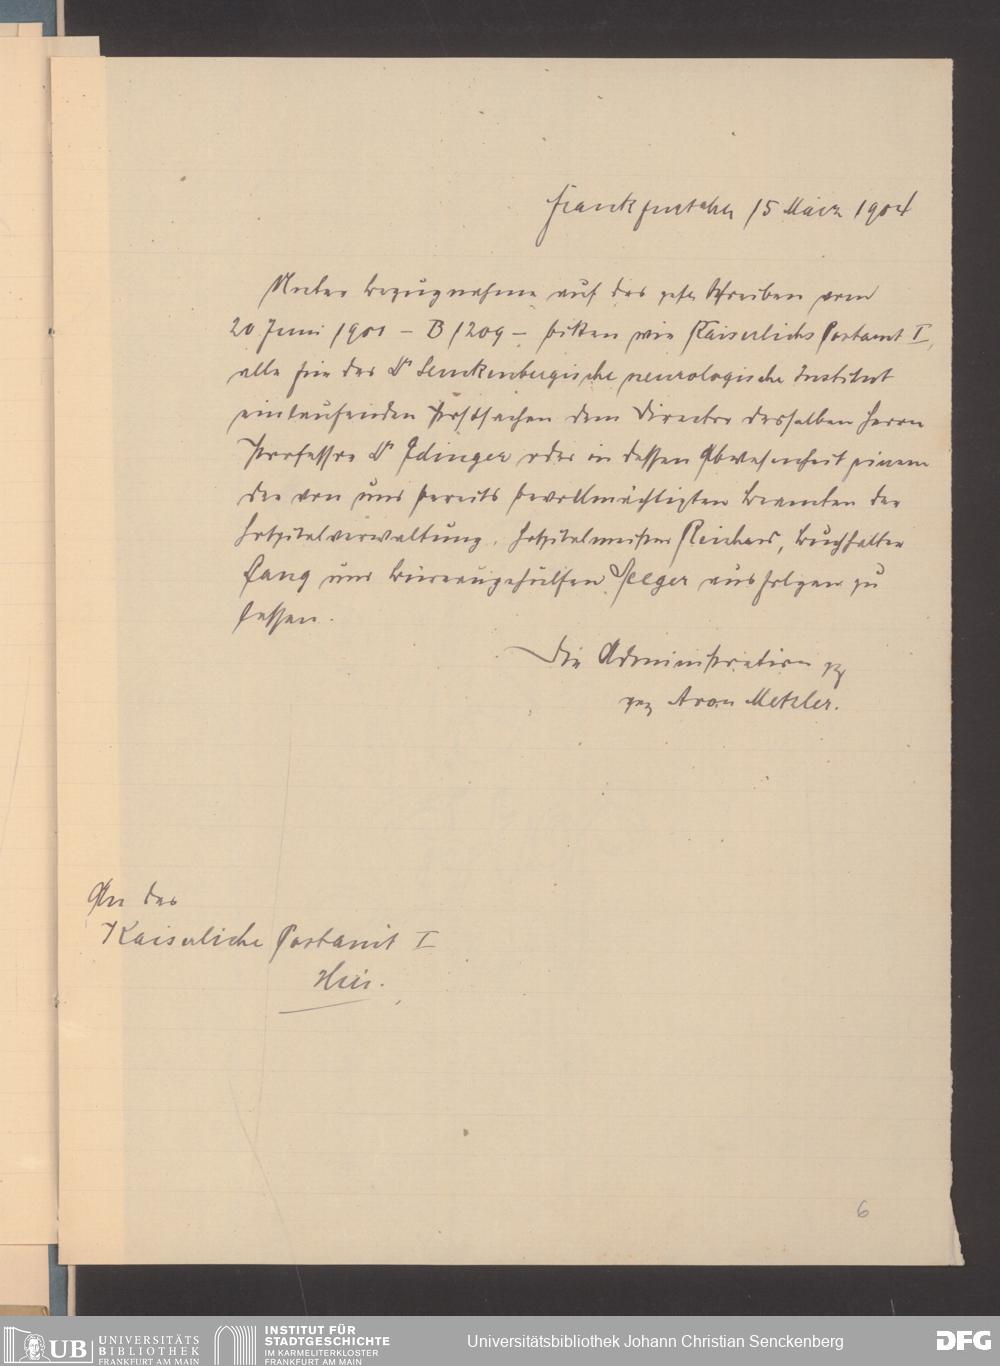 Frankfurt a/M 15 März 1904
Unter Bezugnahme auf das gefl. Schreiben vom
20 Juni 1901 – B 1209 – bitten wir Kaiserliches Postamt I,
alle für das Dr Senckenbergische neurologische Institut
einlaufenden Postsachen dem Director desselben Herrn
Professor Dr Edinger oder in dessen Abwesenheit einem
der von uns bereits bevollmächtigten Beamten der
Hospitalverwaltung, Hospitalmeister Reichard, Buchhalter
Lang und Bureaugehülfen Seeger ausfolgen zu
lassen.
Die Administration pp
gez Aron Metzler.
An das
Kaiserliche Postamt I
Hier.
6
UB UNIVERSITÄTS
BIBLIOTHEK
FRANKFURT AM MAIN
INSTITUT FÜR
STADTGESCHICHTE
IM KARMELITERKLOSTER
FRANKFURT AM MAIN
Universitätsbibliothek Johann Christian Senckenberg
DFG